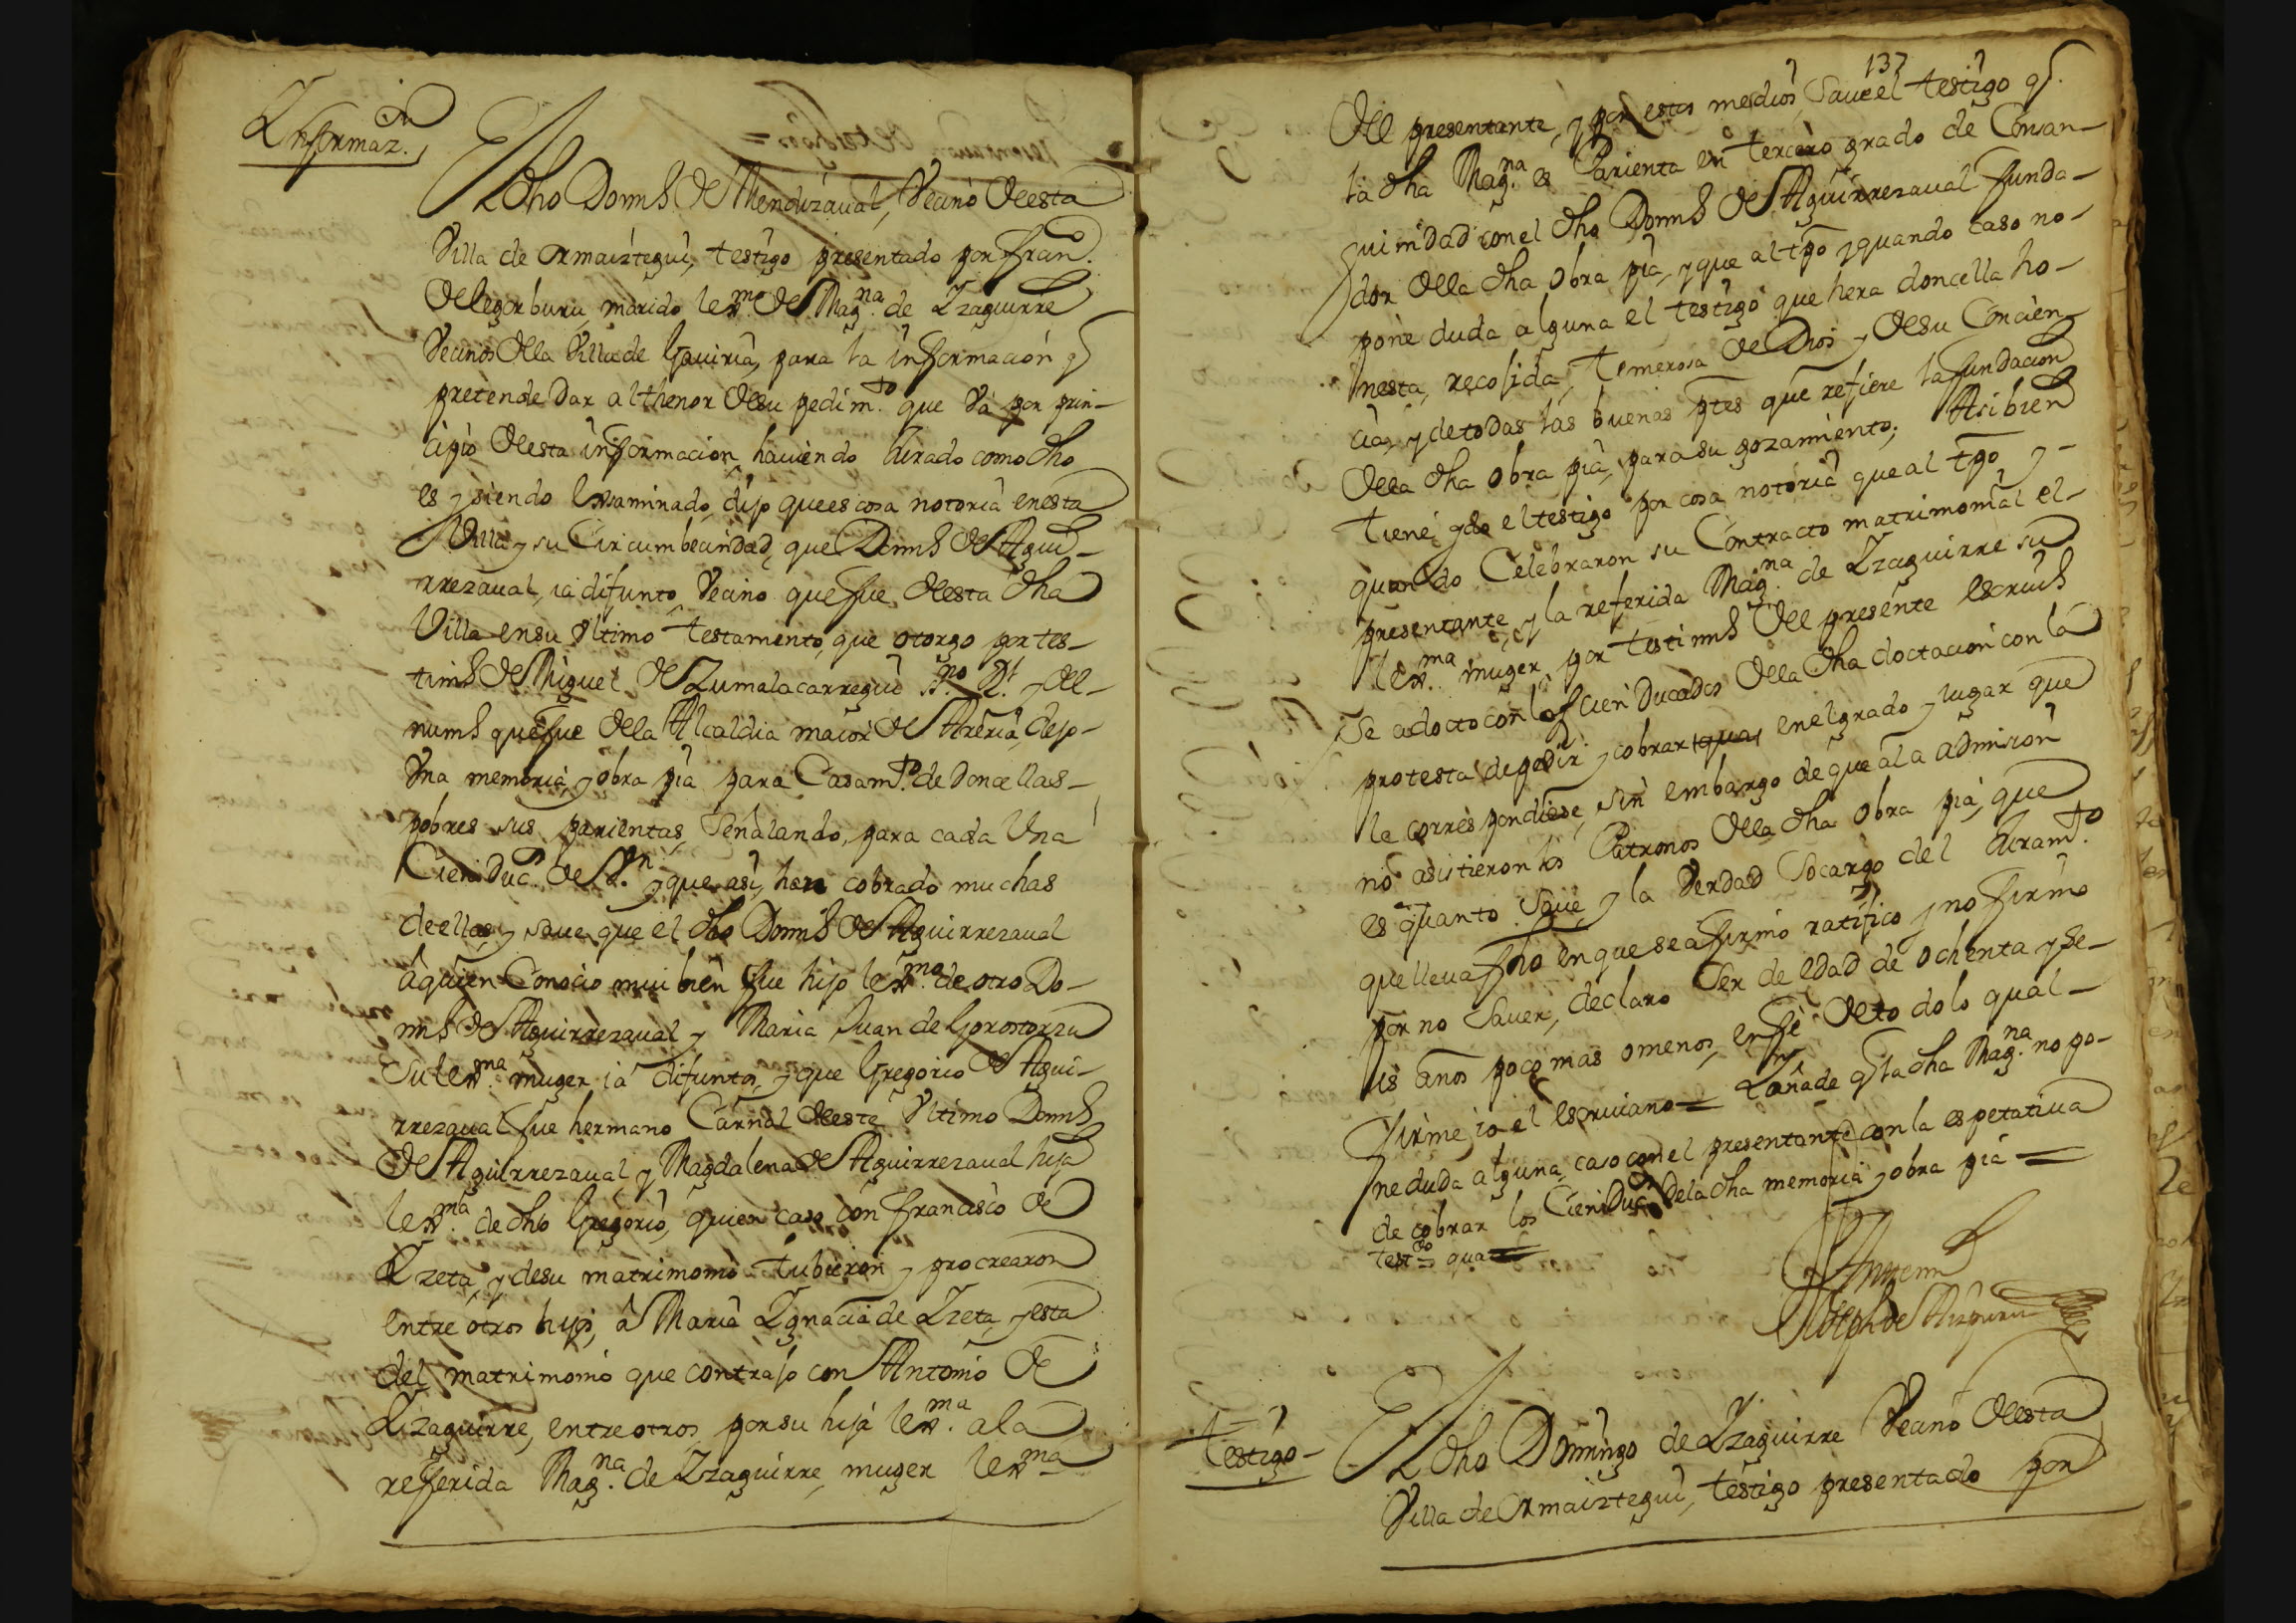 Informaz.on
El dho Domis de Mendizaual, Vecino de esta
Villa de Ormaiztegui, testigo presentado por Fran.co
de Legorburu, marido lexmo de Mag.na de Yzaguirre
Vecinos de la Villa de Gauiria, para la informacion q
pretende dar al thenor de su pedim.to que va por prin-
cipio de esta informacion, hauiendo Jurado como dho
es y siendo exsaminado, dijo que es cosa notoria en esta
Villa y su Circumbecindad, que Domis de Agui-
rrezaual, ia difunto, Vecino que fue de esta dha
Villa en su Vltimo testamento, que otorgo por tes-
timo de Miguel de Zumalacarregui s.no R.l y del
num.o que fue de la Alcaldia maior de Areria, dejo
Vna memoria, y obra pia para Casam.to de doncellas
pobres sus parientas, Señalando, para cada Vna
Cien Duc.s de v.n y que asi, han cobrado muchas
de ellas, y saue que el dho Domis de Aguirrezaual
â quien Conocio mui bien fue hijo lexmo de otro Do-
mis de Aguirrezaual y Maria Juan de Gorostorzu
Su lexma muger ia difuntos, y que Gregorio de Agui-
rrezaual fue hermano Carnal de este Vltimo Domis
de Aguirrezaual, y Magdalena de Aguirrezaual hija
lexma de dho Gregorio, quien caso con Francisco de
Yzeta, y de su matrimonio tubieron y procrearon
entre otros hijos, â Maria Ygnacia de Yzeta, y esta
del matrimonio que contrajo con Antonio de
Yzaguirre, entre otros, por su hija lexma a la
referida Mag.na de Yzaguirre, muger lexma
137
del presentante, y por estos medios Saue el testigo q.
la dha Mag.na es Parienta en tercero grado de Consan-
guinidad con el dho Domis de Aguirrezaual funda-
dor de la dha obra pia, y que al tpo y quando caso no
pone duda alguna el testigo que hera doncella ho-
nesta, recojida, temerosa de Dios y de su Concien-
cia, y de todas las buenas ptes que refiere la fundacion
de la dha obra pia, para su gozamiento; Asi bien
tiene, ydo el testigo por cosa notoria que al tpo y
quando Celebraron su Contracto matrimonial el
presentante, y la referida Mag.na de Yzaguirre su
lexma muger, por testimo del presente escriuo
Se adocto con los cien Ducados de la dha doctacion con la
protesta de pedir y cobrar qua en el grado y lugar que
le correspondiese, sin embargo de que a la admision
no asistieron los Patronos de la dha obra pia, que
es quanto Saue, y la Verdad Socargo del Juram.to
que lleua fho en que se afirmo ratifico y no firmo
por no Sauer, declaro Ser de edad de ochenta y se-
is años poco mas o menos, en fe de todo lo qual
firme io el escriuano = Y añade q la dha Mag.na no po-
ne duda alguna, caso con el presentante con la espetatiua
de cobrar los Cien Duc.s de la dha memoria y obra pia =
test.do = qua =
Ante mi
Joseph de Aizpuru
Testigo
El dho Domingo de Yzaguirre Vecino de esta
Villa de Ormaiztegui, testigo presentado por